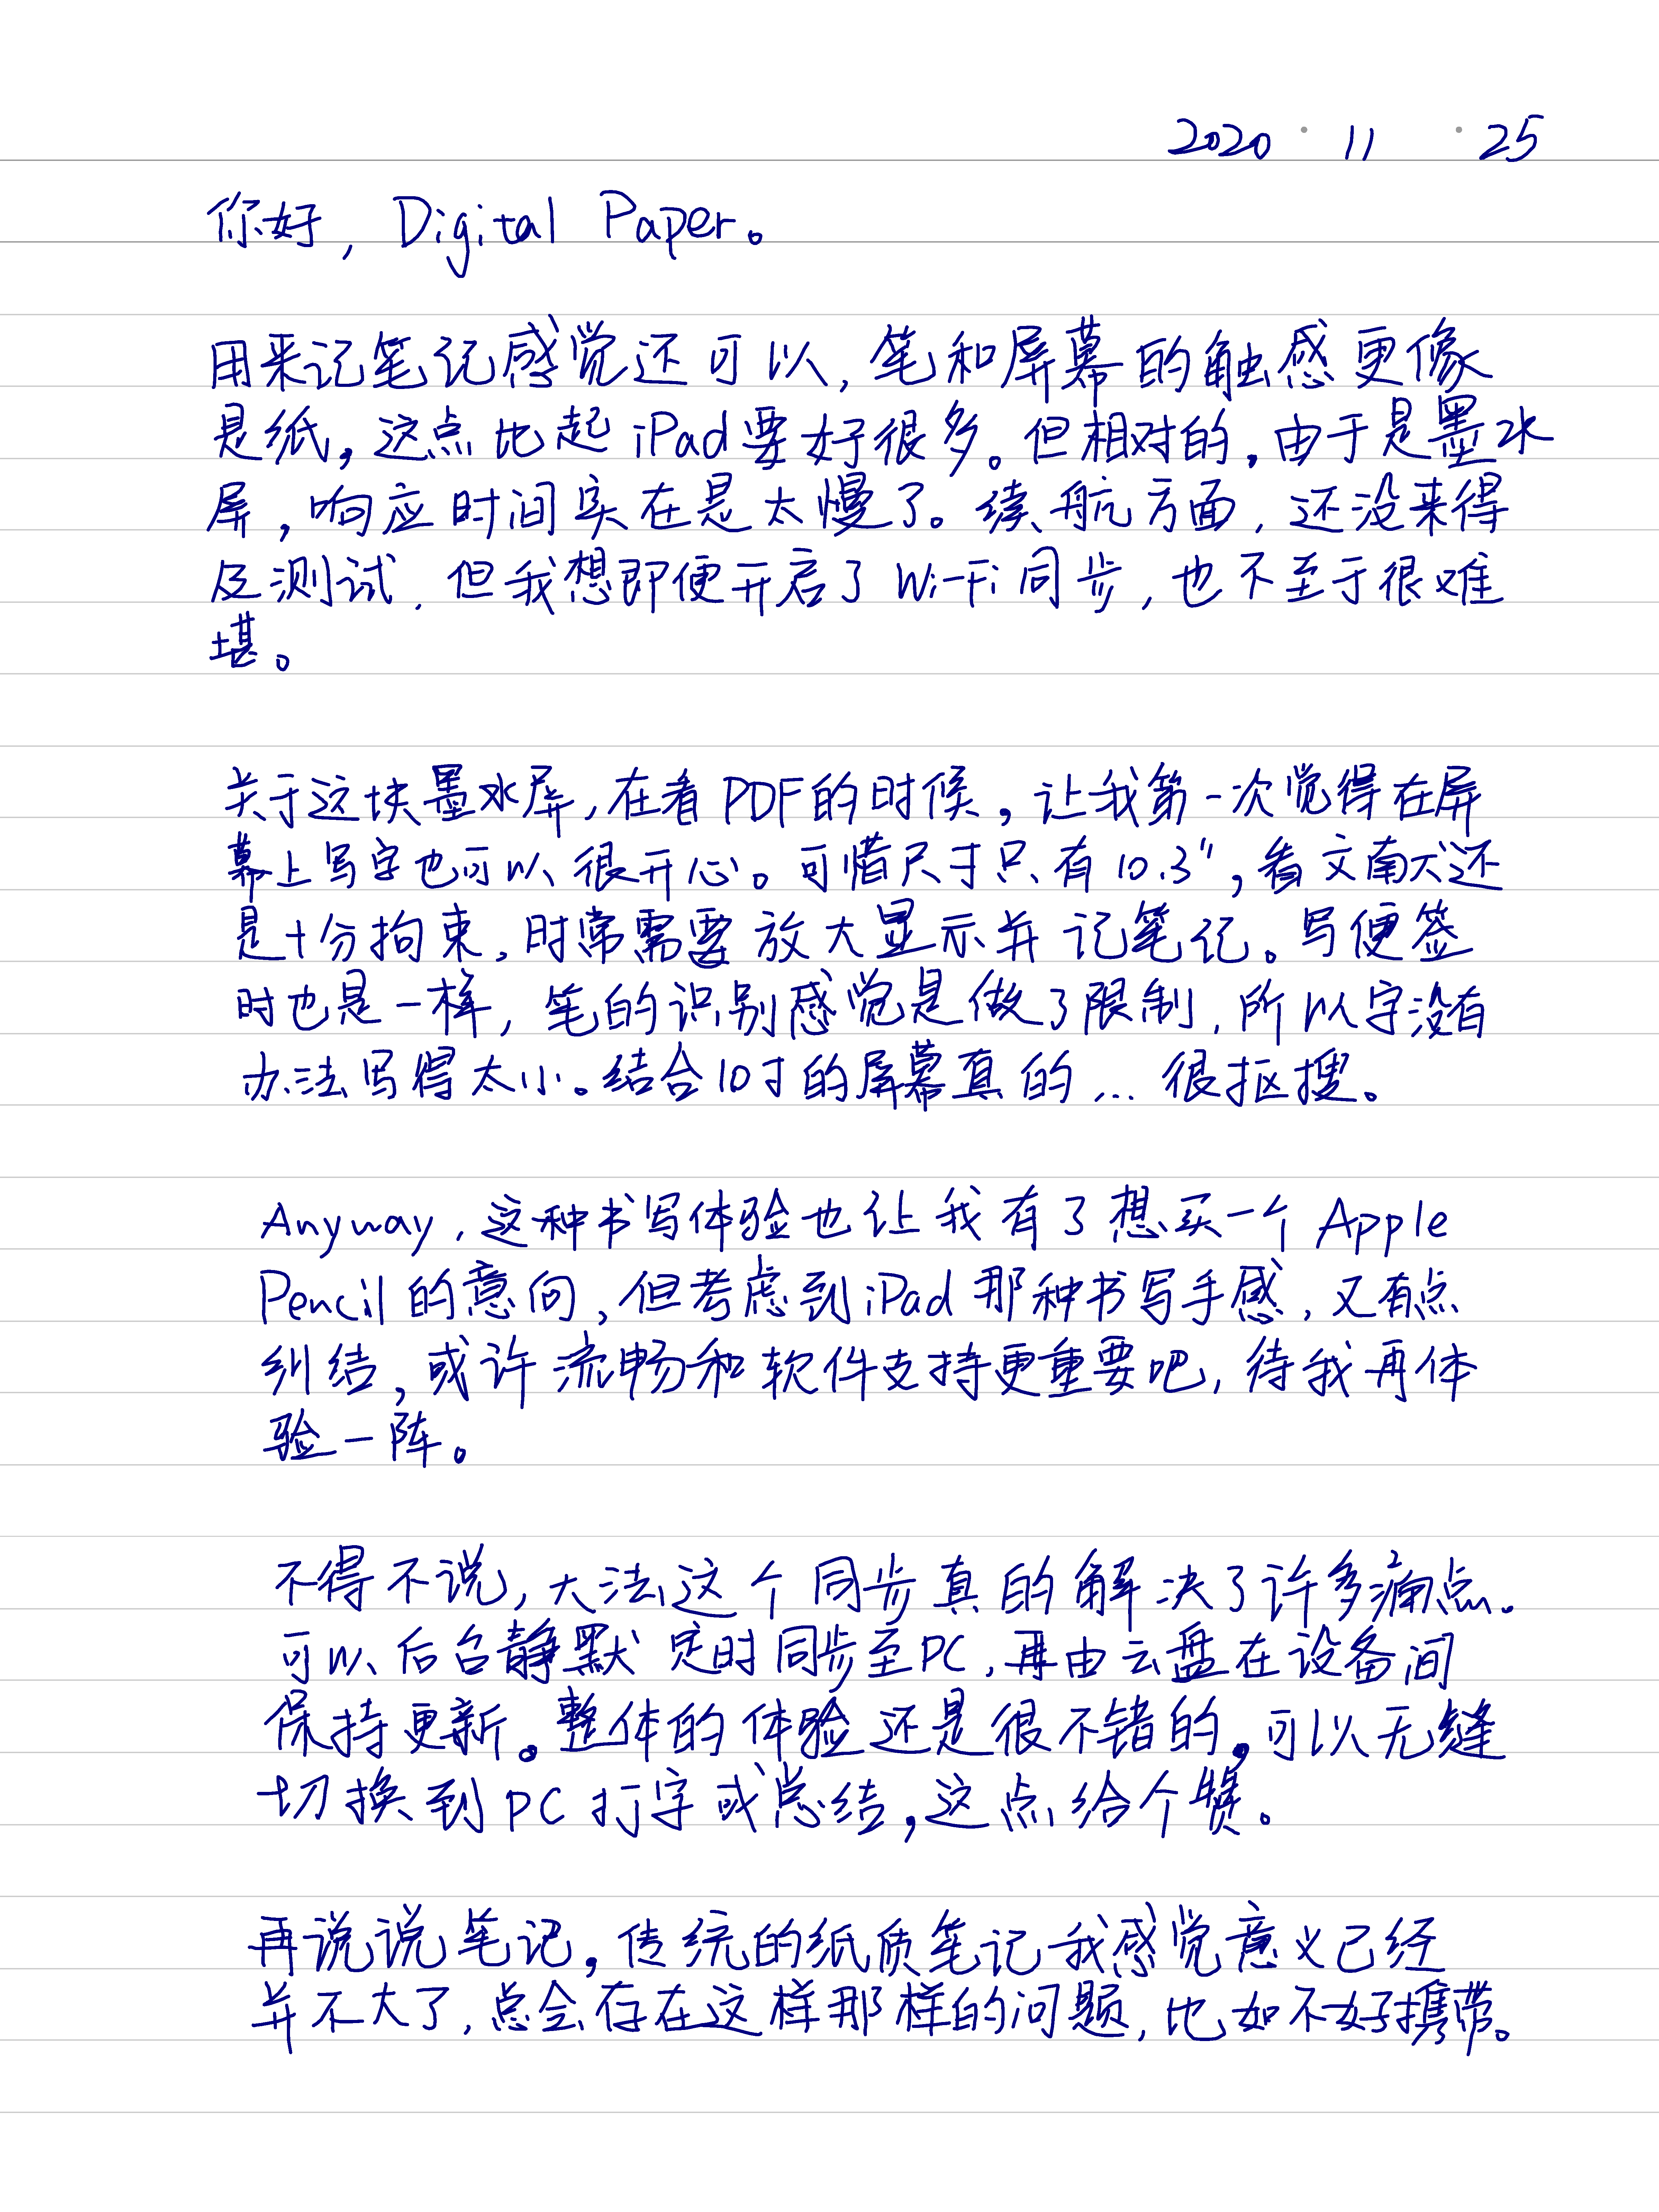 2020 · 11 · 25
你好, Digital Paper。
用来记笔记感觉还可以, 笔和屏幕的触感更像
是纸, 这点比起 iPad 要好很多。但相对的, 由于是墨水
屏, 响应时间实在是太慢了。续航方面, 还没来得
及测试, 但我想即便开启了 Wi-Fi 同步, 也不至于很难
堪。
关于这块墨水屏, 在看 PDF 的时候, 让我第一次觉得在屏
幕上写字也可以很开心。可惜尺寸只有 10.3", 看文献还
是十分拘束, 时常需要放大显示并记笔记。写便签
时也是一样, 笔的识别感觉是做了限制, 所以字没有
办法写得太小。结合10寸的屏幕真的... 很抠搜。
Anyway, 这种书写体验也让我有了想买一个 Apple
Pencil 的意向, 但考虑到 iPad 那种书写手感, 又有点
纠结, 或许流畅和软件支持更重要吧, 待我再体
验一阵。
不得不说, 大法这个同步真的解决了许多痛点.
可以后台静默定时同步至PC, 再由云盘在设备间
保持更新。整体的体验还是很不错的, 可以无缝
切换到 PC 打字或总结, 这点给个赞。
再说说笔记, 传统的纸质笔记我感觉意义已经
并不大了, 总会存在这样那样的问题, 比如不好携带。